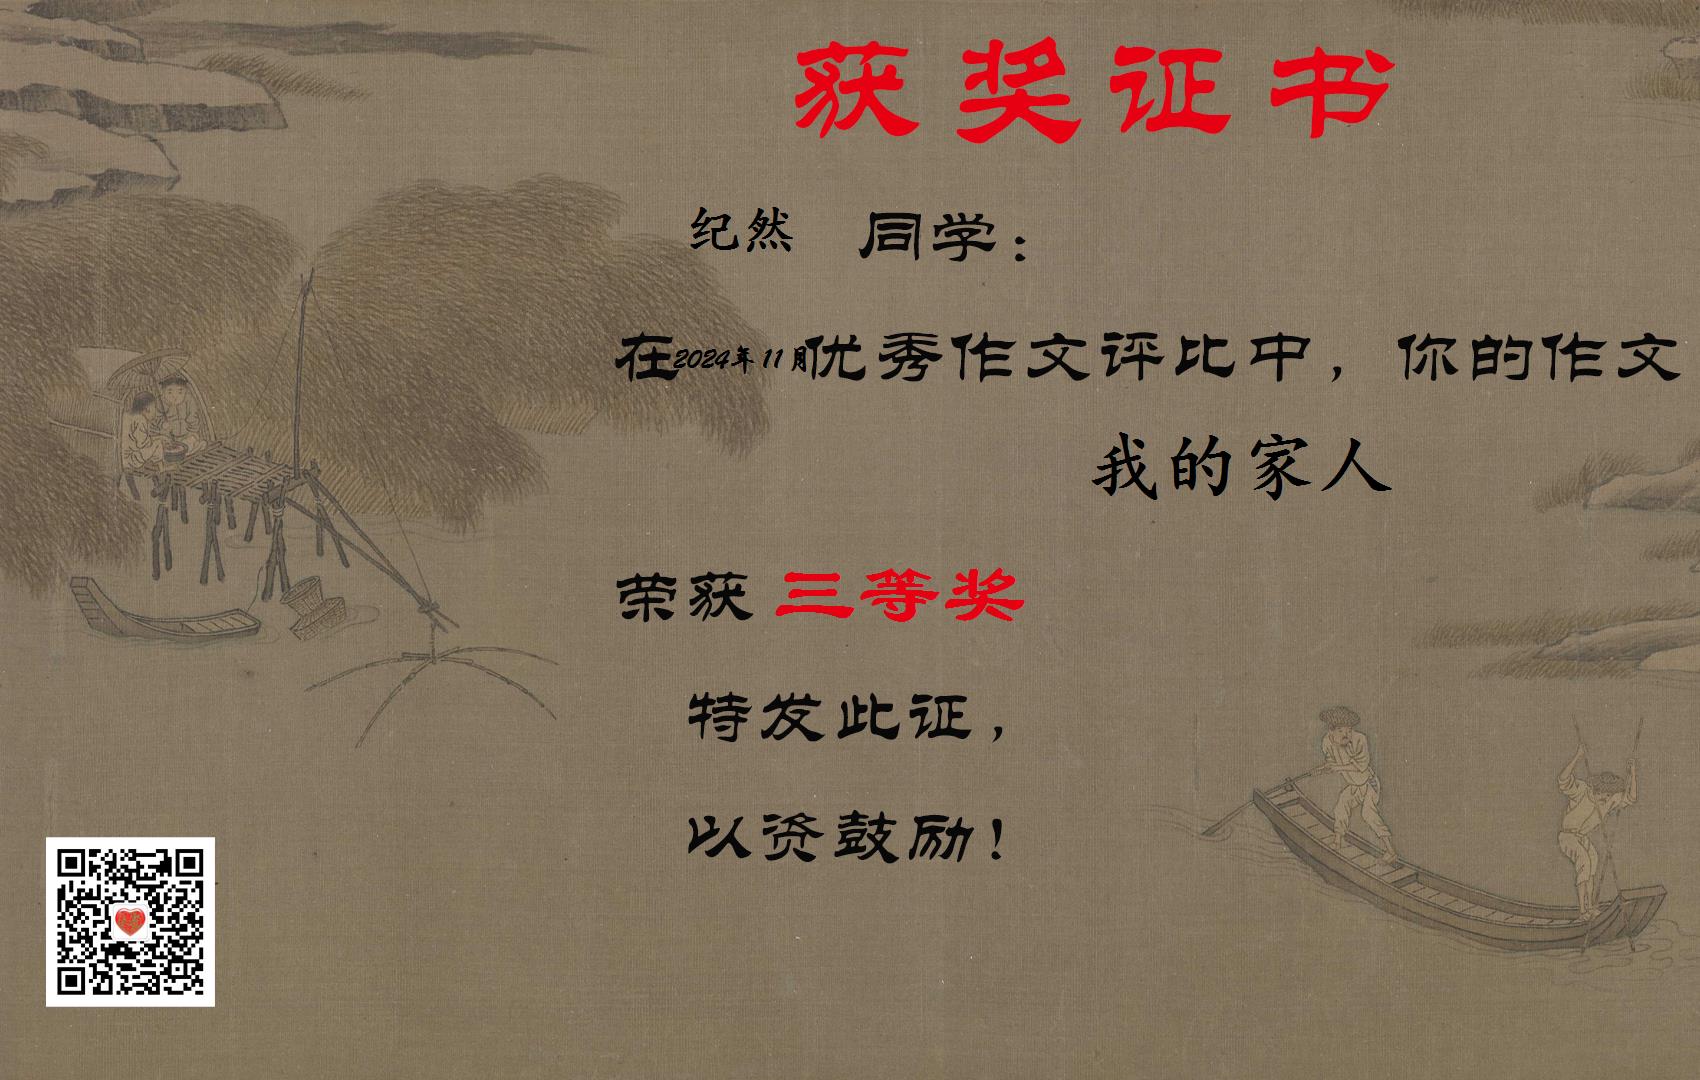 获奖证书
纪然 同学：
在2024年11月优秀作文评比中，你的作文
我的家人
荣获 三等奖
特发此证，
以资鼓励！